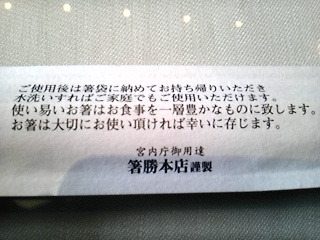 ご使用後は箸袋に納めてお持ち帰りいただき
水洗いすればご家庭でもご使用いただけます。
使い易いお箸はお食事を一層豊かなものに致します。
お箸は大切にお使い頂ければ幸いに存じます。
宮内庁御用達
箸勝本店謹製